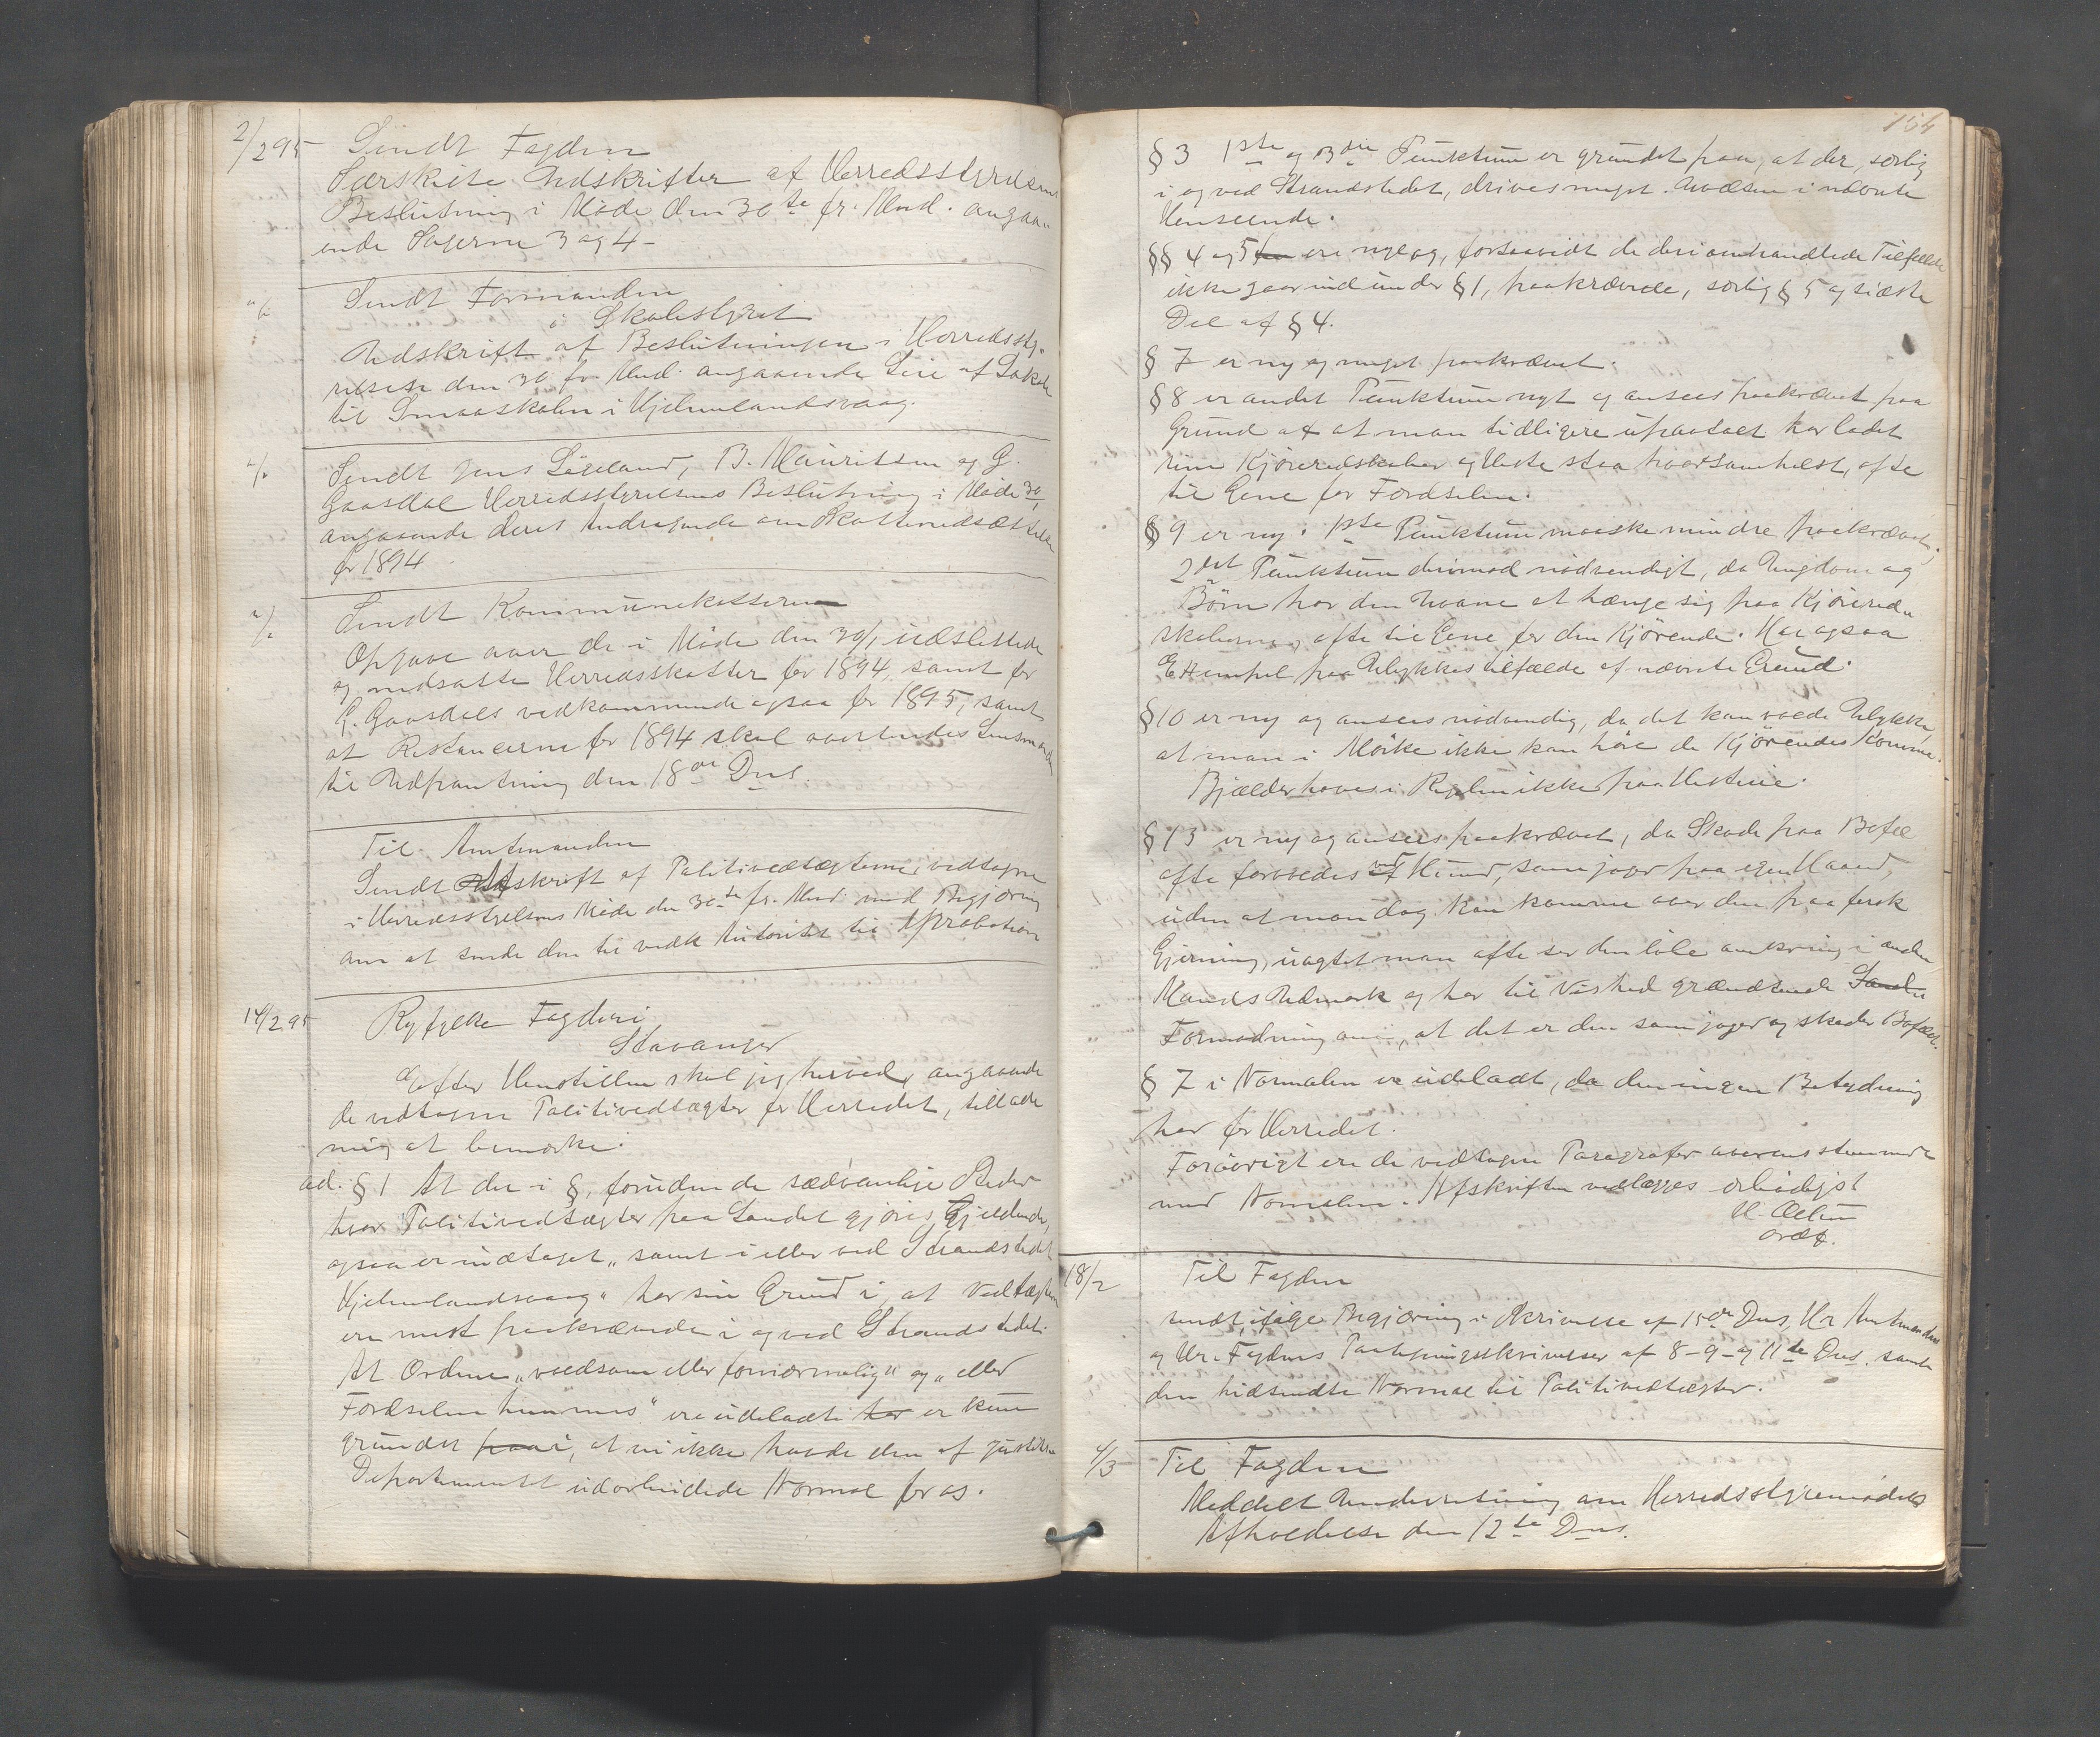 2/2 95 Sendt Fogden
Særskilte Udskrifter af Herredsstyrelsens
Beslutning i Møde den 30te fr. Mnd. angaa-
ende Sagerne 3 og 4 -
"/" Sendt Formanden
i Skolestyret
Udskrift af Beslutningen i Herredssty-
relsen den 30 fr. Mnd. angaaende Leie af Lokale
til Smaaskolen i Hjelmelandsvaag.
"/" Sendt Jens B. Mauritsen og G.
Gaasdal Herredsstyrelsens Beslutning i Møde 30/1
angaaende deres Andragende om Skattenedsættelse
for 1894
"/" Sendt Kommunekassereren
Opgave over de i Møde den 30/1 udslettede
og nedsatte Herredsskatter for 1894, samt for
G. Gaasdals vedkommende ogsaa for 1895, samt
at Restancerne for 1894 skal oversendes Lensmanden
til Udpantning den 18de Ds.
Til Amtmanden
Sendt Afskrift af Politivedtægterne vedtagne
i Herredsstyrelsens Møde den 30te fr. Mnd. med Begjæring
om at sende dem til vedk. Autoritet til Approbation
14/2 95 Ryfylke Fogderi
Stavanger
Efter Henstillen skal jeg herved, angaaende
de vedtagne Politivedtægter for Herredet, tillade
mig at bemærke:
ad. § 1 At der i §, foruden de sædvanlige Steder
hvor Politivedtægter paa Landet gjøres Gjeldende,
ogsaa er indtaget „samt i eller ved Strandstedet
Hjelmelandsvaag" har sin Grund i, at Vedtægterne
ere mest paakrævede i og ved Strandstedet.
At Ordene „voldsom eller fornærmelig" og „eller
Færdselen hemmes" ere udeladte har er kun
grundet paa i, at vi ikke havde den af Justits
Departementet udarbeidede Normal for os.
154
§ 3 1ste og 3die Punktum er grundet paa, at der, særlig
i og ved Strandstedet, drives meget Uvæsen i nævnte
Henseende.
§§ 4 og 5 er ere nye og, forsaavidt de deri omhandlede Tilfælde
ikke gaar ind under § 1, paakrævede, særlig § 5 og sidste
Del af § 4.
§ 7 er ny og meget paakrævet.
§ 8 er andet Punktum nyt og ansees paakrævet paa
Grund af at man tidligere upaatalt har ladet
sine Kjøreredskaber og Heste staa hvorsomhelst, ofte
til Gene for Færdselen.
§ 9 er ny. 1ste Punktum maaske mindre paakrævet,
2det Punktum derimod nødvendigt, da Ungdom og
Børn har den Uvane at hænge sig paa Kjørered-
skaberne, ofte til Gene for den Kjørende. Har ogsaa
Exempel paa Ulykkestilfælde af nævnte Grund.
§ 10 er ny og ansees nødvendig, da det kan volde Ulykke,
at man i Mørke ikke kan høre de Kjørendes Komme.
Bjælder haves i Regelen ikke paa Hestene.
§ 13 er ny og ansees paakrævet, da Skade paa Bofæ
ofte forvoldes af ved Hund, som jager paa egen Haand,
uden at man dog kan komme over den paa fersk
Gjerning, uagtet man ofte ser den løbe omkring i anden
Mands Udmark og har til Vished grændsende
Formodning om, at det er den som jager og skader Bofæet.
§ 7 i Normalen er udeladt, da den ingen Betydning
har for Herredet.
Forøvrigt ere de vedtagne Paragrafer overensstemmende
med Normalen. Afskriften vedlægges ærbødigst
ordf.
18/2 Til Fogden
sendt, ifølge Begjæring i Skrivelse af 15de Ds, Hr Amtmanden
og Hr. Fogdens Paategningsskrivelser af 8 - 9 - og 11te Ds. samt
den tilsendte Normal til Politivedtægter.
4/3 Til Fogden
Meddelt Underretning om Herredsstyremødets
Afholdelse den 12te Ds.